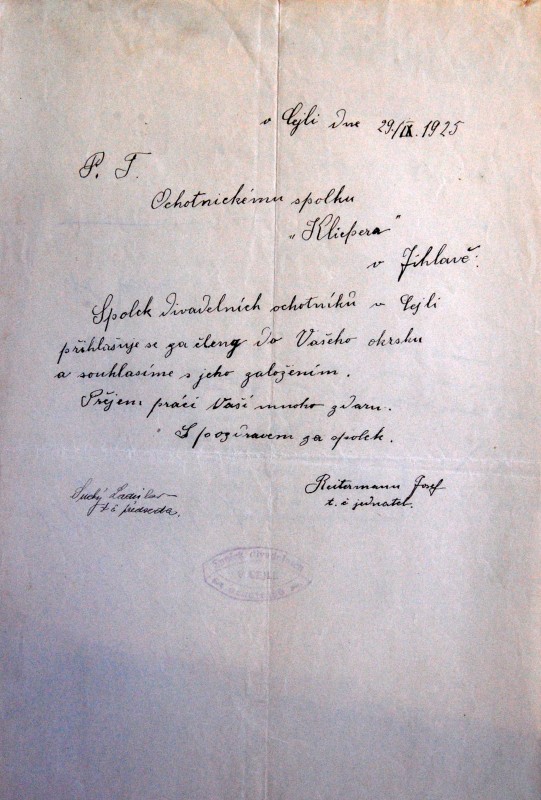 v Cejli dne 29./IX. 1925
P. T.
Ochotnickému spolku
„Klicpera“
v Jihlavě.
Spolek divadelních ochotníků v Cejli
přihlašuje se za členy do Vašeho okrsku
a souhlasíme s jeho založením.
Přejem práci Vaší mnoho zdaru.
S pozdravem za spolek.
Suchý Ladislav
t. č. předseda.
Reitermann Josef
t. č. jednatel.
Spolek divadelních
V CEJLI